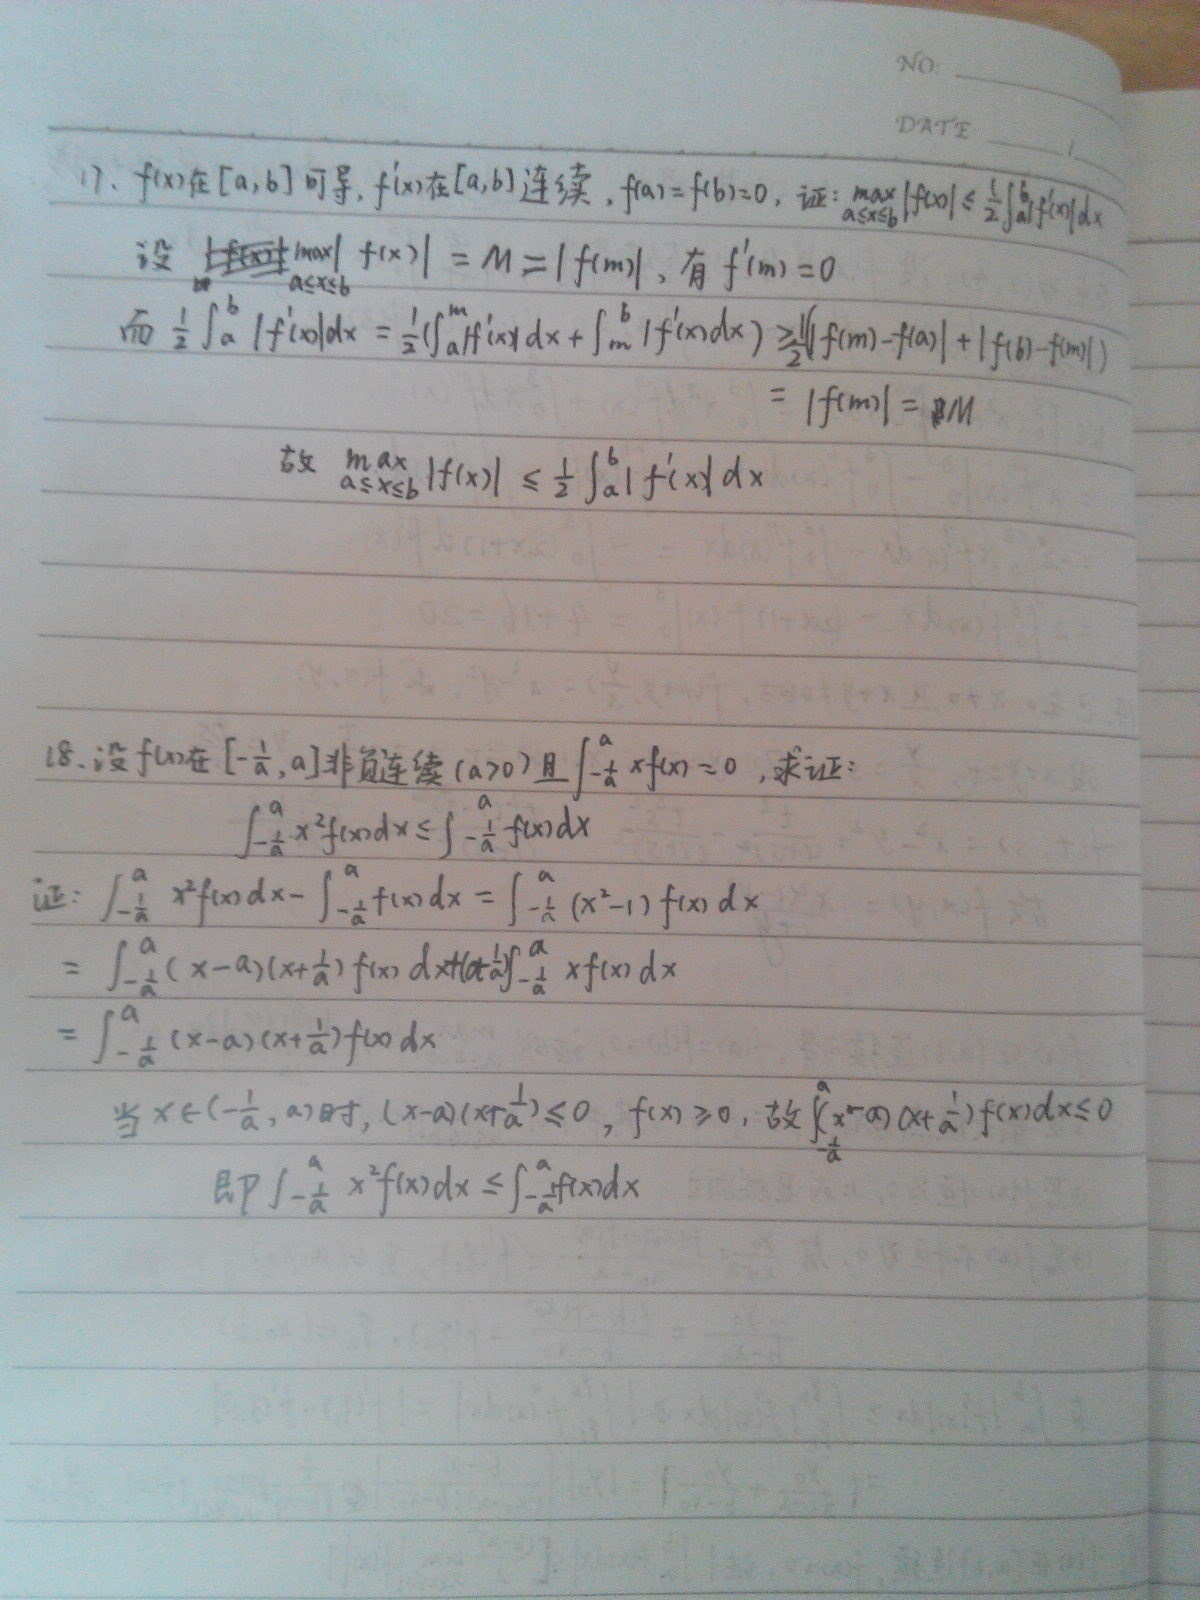 NO:
DATE
17. f(x)在[a,b]可导, f'(x)在[a,b]连续, f(a)=f(b)=0, 证: max_{a≤x≤b}|f(x)| ≤ 1/2∫_a^b|f'(x)|dx
设 max_{a≤x≤b}| f(x)| = M = |f(m)|, 有 f'(m)=0
而 1/2∫_a^b |f'(x)|dx = 1/2(∫_a^m|f'(x)|dx + ∫_m^b |f'(x)dx) ≥ 1/2(|f(m)-f(a)| + |f(b)-f(m)|)
= |f(m)| = M
故 max_{a≤x≤b}|f(x)| ≤ 1/2∫_a^b| f'(x)|dx
18. 设f(x)在[-1/a, a]非负连续(a>0)且∫_{-1/a}^a xf(x)=0, 求证:
∫_{-1/a}^a x²f(x)dx ≤ ∫_{-1/a}^a f(x)dx
证: ∫_{-1/a}^a x²f(x)dx - ∫_{-1/a}^a f(x)dx = ∫_{-1/a}^a (x²-1)f(x)dx
= ∫_{-1/a}^a (x-a)(x+1/a)f(x)dx+(a-1/a)∫_{-1/a}^a xf(x)dx
= ∫_{-1/a}^a (x-a)(x+1/a)f(x)dx
当x∈(-1/a, a)时, (x-a)(x+1/a)≤0, f(x)≥0, 故∫_{-1/a}^a(x-a)(x+1/a)f(x)dx≤0
即∫_{-1/a}^a x²f(x)dx ≤ ∫_{-1/a}^a f(x)dx